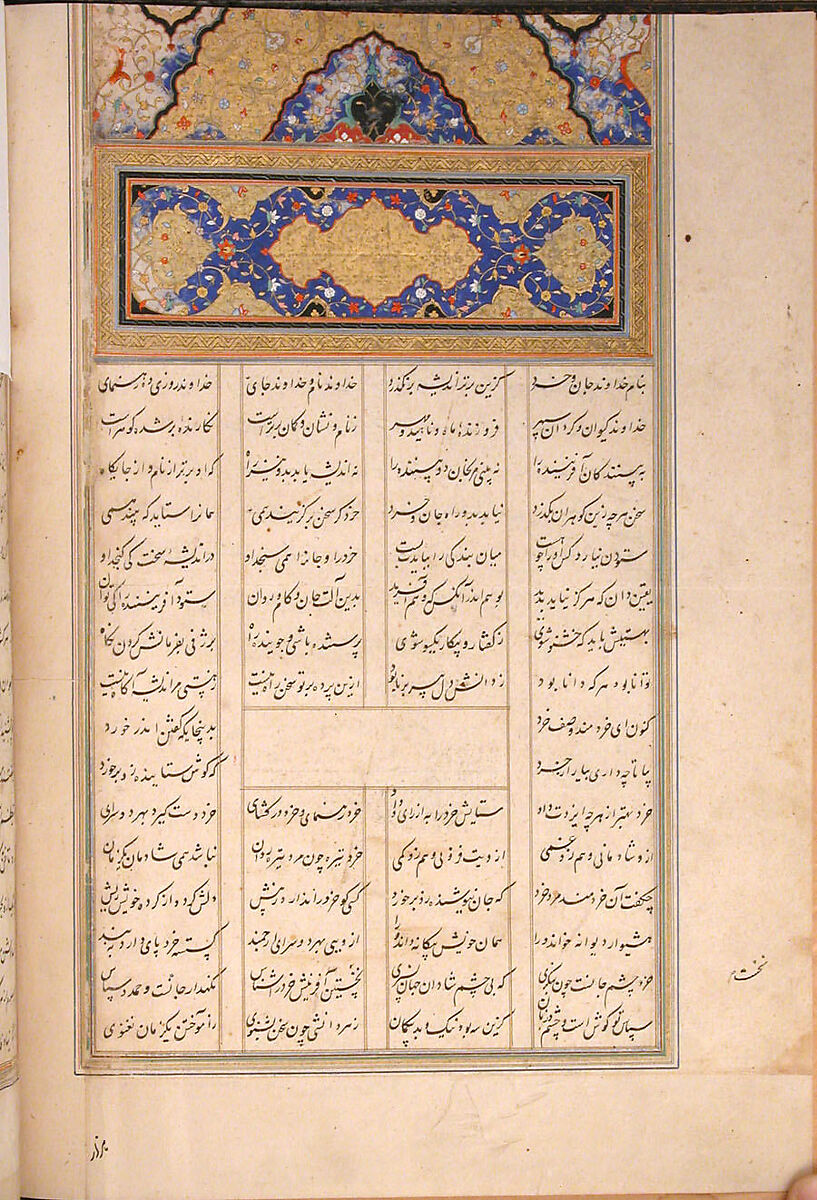 بنام خداوند جان و خرد کزین برتر اندیشه برنگذرد خداوند نام و خداوند جای خداوند روزی ده رهنمای
خداوند کیوان و گردان سپهر فروزنده ماه و ناهید و مهر ز نام و نشان و گمان برترست نگارنده برشده گوهرست
به بینندگان آفریننده را نه بینی مرنجان دو بیننده را نه اندیشه یابد بدو نیز راه که او برتر از نام و از جایگاه
سخن هرچه زین گوهران بگذرد نیابد بدو راه جان و خرد خرد گر سخن برگزیند همی همانرا ستاید که بیند همی
ستودن نیارد کس او را چو هست میان بندگی را ببایدت بست خرد را و جانرا همی سنجد او در اندیشه سخت کی گنجد او
یقین دان که هرگز نیاید پدید بوهم اندر آنکس که وهم آفرید بدین آلت جان و کام و روان ستود آفریننده را کی توان
بهستیش باید که خستو شوی ز گفتار و پیکار یکسو شوی پرستنده باشی و جوینده راه بژرفی بفرمانش کردن نگاه
توانا بود هرکه دانا بود ز دانش دل پیر برنا بود ازین پرده برتر سخن راه نیست ز هستی مر اندیشه آگاه نیست
کنون ای خردمند وصف خرد بدینجایگه گفتن اندر خورد
بیا تا چه داری بیار از خرد که گوش ستاینده زو برخورد
خرد بهتر از هرچه ایزدت داد ستایش خرد را به از رای و داد خرد رهنمای و خرد دلگشای خرد دست گیرد بهر دو سرای
ازو شادمانی و هم زو غمی ازویت فزونی و هم زو کمی خرد تیره چون مرد تیره روان نباشد همی شادمان یکزمان
چگفت آن خردمند مرد خرد که جان نیوشنده زو برخورد کسی کو خرد را ندارد ز پیش دلش گردد از کرده خویش ریش
هشیوار دیوانه خواند ورا همان خویش بیگانه داند ورا ازویی بهر دو سرای ارجمند گسسته خرد پای دارد ببند
خرد چشم جانست چون بنگری که بی چشم شادان جهان نسپری نخستین آفرینش خرد را شناس نگهدار جانست و حمد و سپاس
سپاس تو گوش است و چشم و زبان کزین سه بود نیک و بد بیگمان ز هر دانشی چون سخن بشنوی ز آموختن یکزمان نغنوی